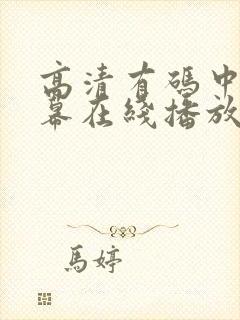 高清有碼中
幕在綫播放
馬婷